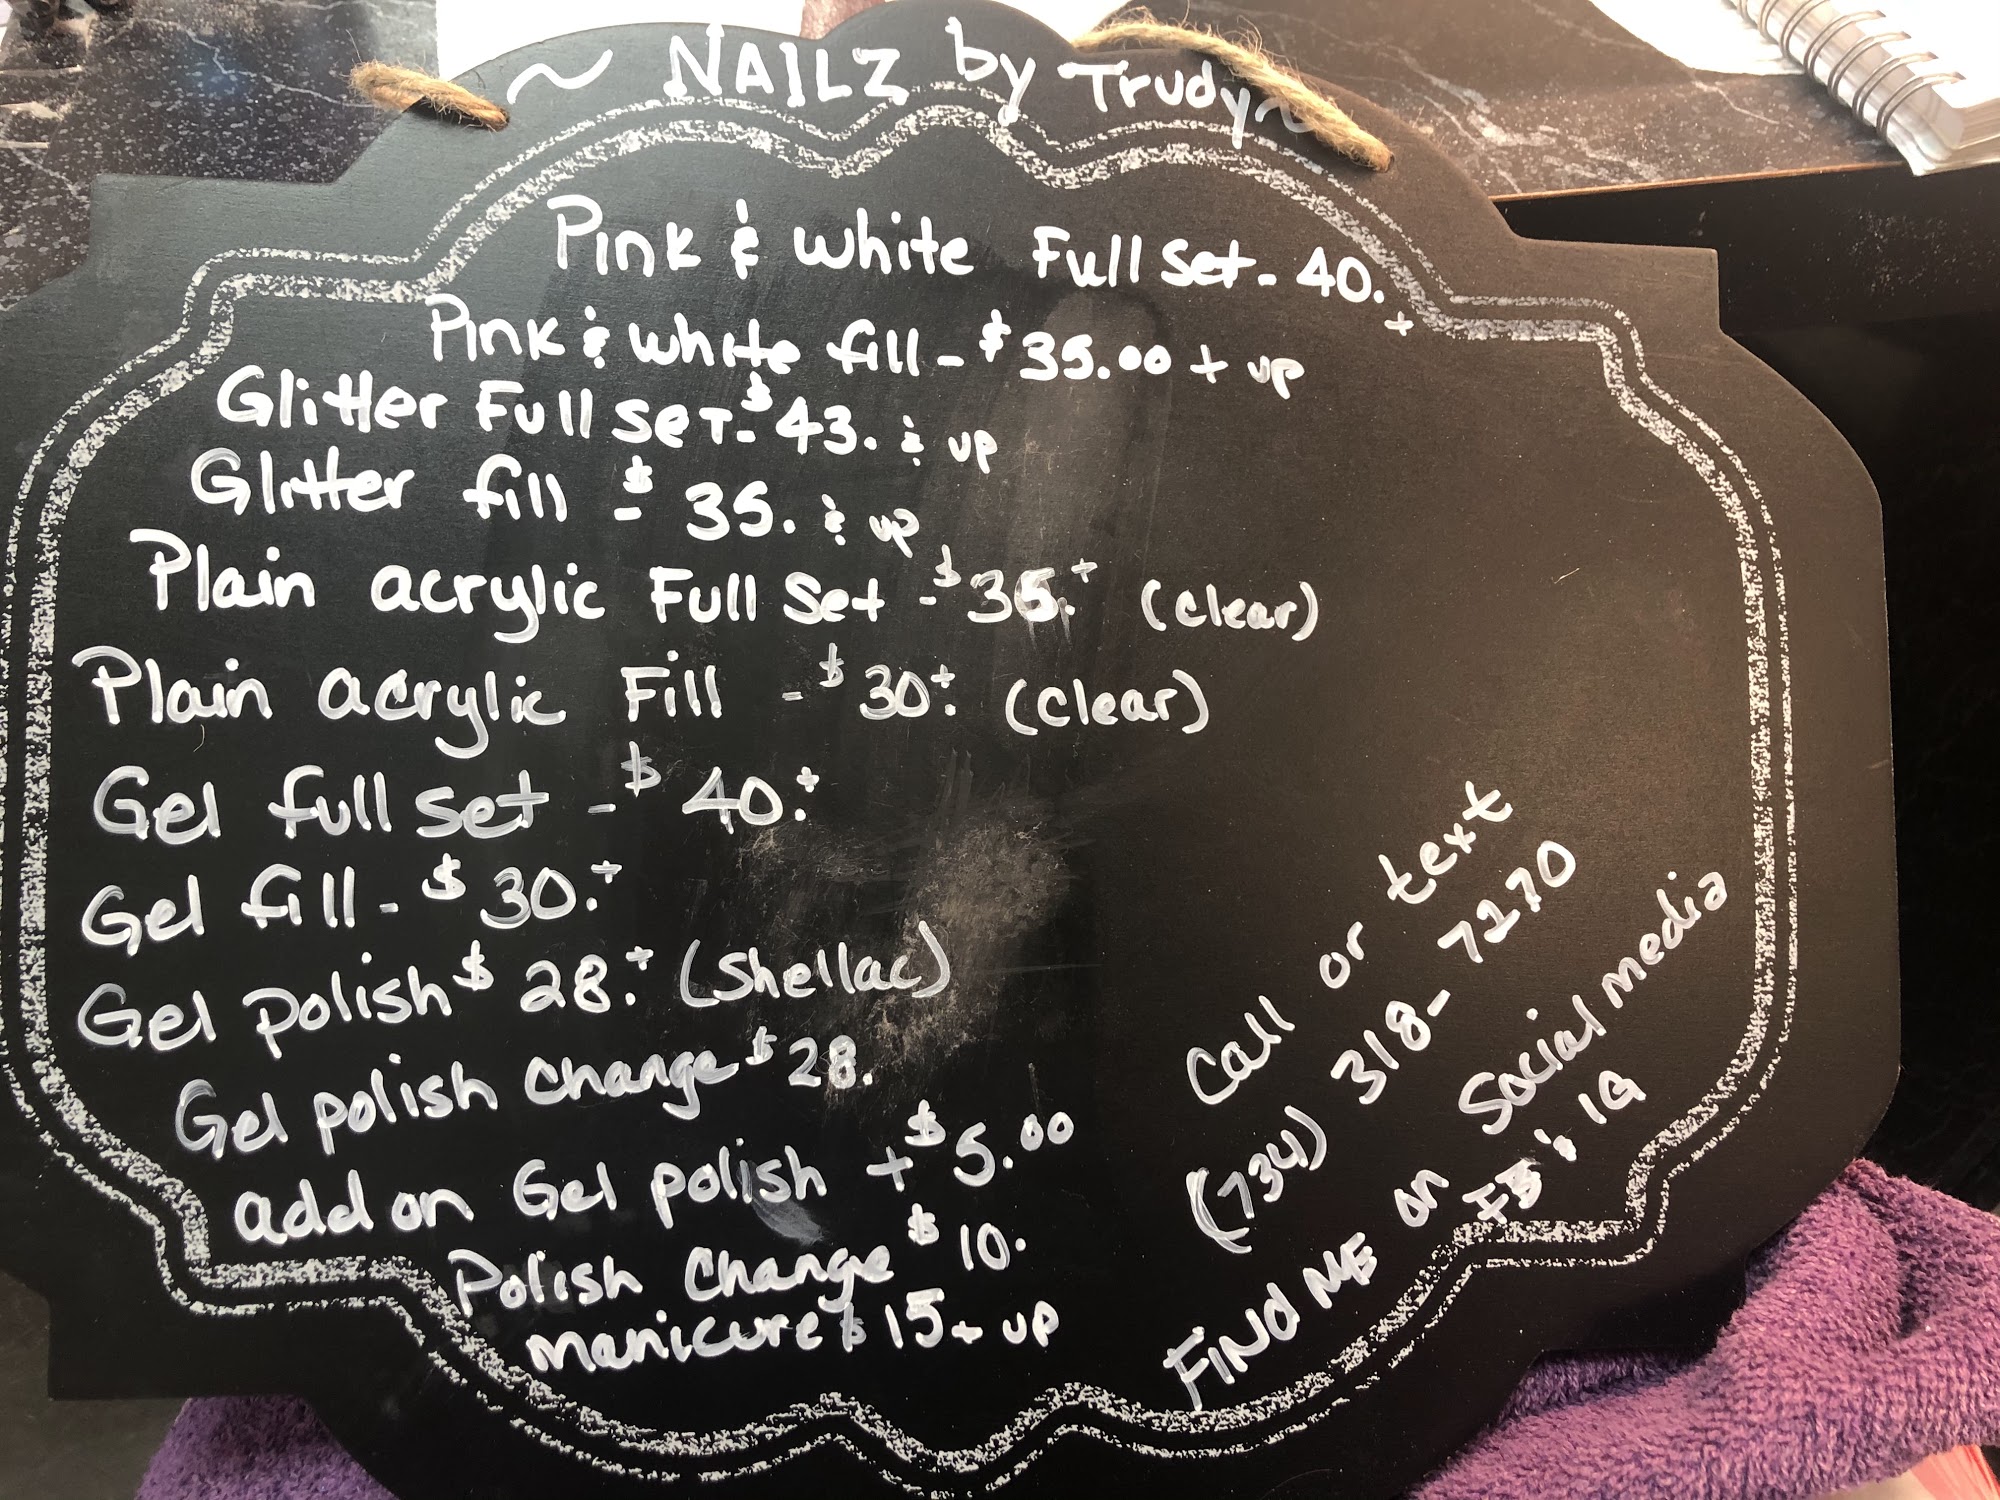 ~ NAILZ by Trudy ~
Pink & white Full Set - 40.+
Pink & white fill - $35.00 + up
Glitter Full Set - $43. & up
Glitter fill - $35. & up
Plain acrylic Full Set - $35.+ (clear)
Plain acrylic Fill - $30.+ (clear)
Gel full set - $40.+
Gel fill - $30.+
Gel polish $28.+ (Shellac)
Gel polish change $28.
add on Gel polish + $5.00
Polish Change $10.
manicure $15 + up
Call or text
(734) 318-7270
FIND ME on Social media
FB & IG